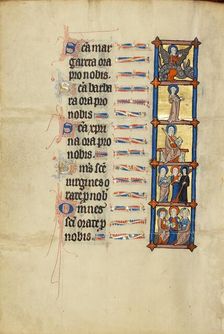 Sca mar
gareta ora
pro nobis.
Sca barba
ra ora pro
nobis
Sca xpri
na ora pro
nobis.
Oms sce
virgines o
rate p nob
Omnes
sci orate p
nobis.